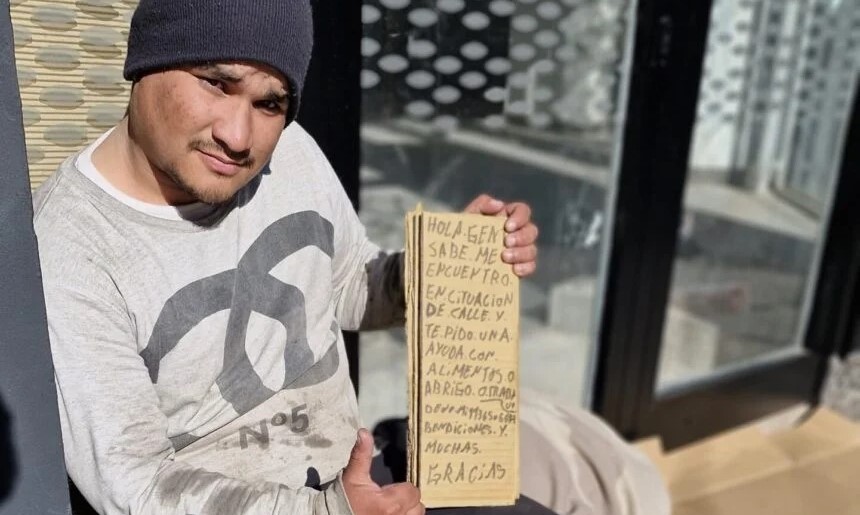 HOLA. GEN
SABE. ME
ENCUENTRO.
EN. CITUACION
DE. CALLE. Y
TE. PIDO. UNA.
AYUDA. CON
ALIMENTOS. O
ABRIGO. O.TRABA
BENDICIONES. Y.
MUCHAS.
GRACIAS
Nº5